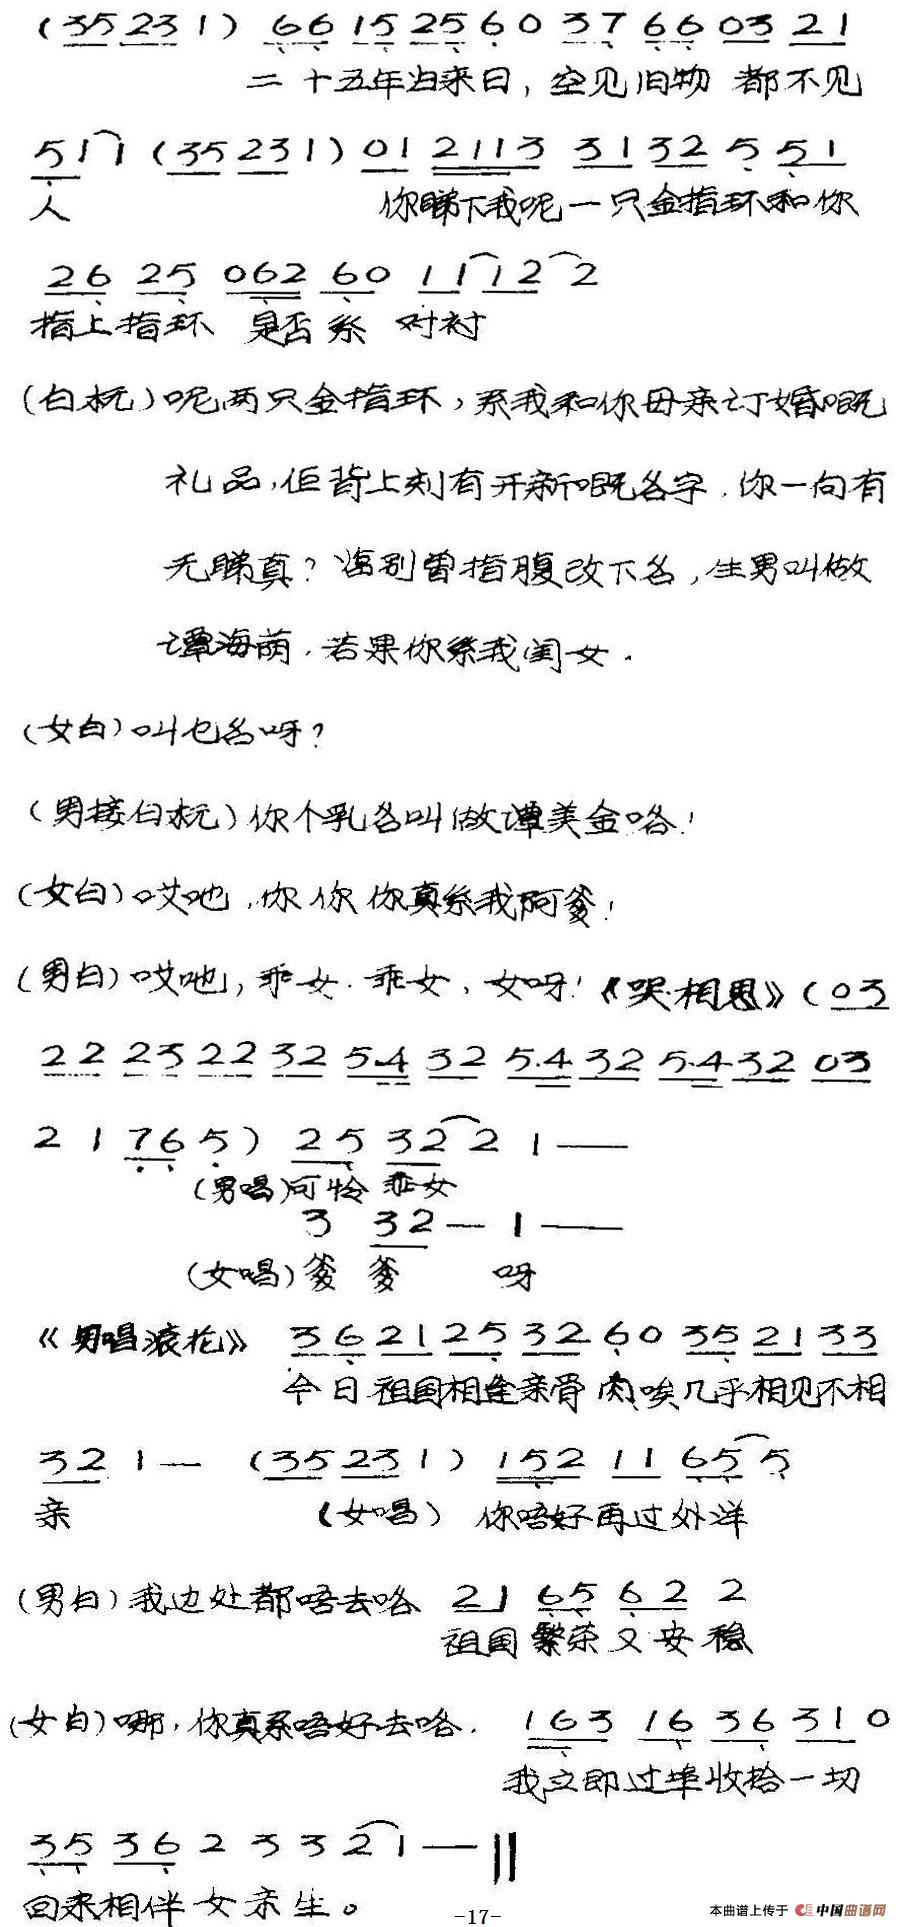 (35 231) 66 15 25 60 37 66 03 21
二十五年由来日，空见旧物 都不见
5 1 1 (35 231) 01 2113 31 32 5 51
人 你睇下我呢一只金指环和你
26 25 062 60 11 12 2
指上指环 是否系 对衬
(白杬)呢两只金指环，系我和你母亲订婚嘅
礼品，佢背上刻有开新嘅名字．你一向有
无睇真？临别曾指腹改下名，生男叫做
谭海萌．若果你系我闺女．
(女白)叫乜名呀？
(男接白杬)你个乳名叫做谭美金咯！
(女白)哎吔，你你你真系我阿爹！
(男白)哎吔，乖女．乖女，女呀！《哭相思》(03
22 23 22 32 5.4 32 5.4 32 5.4 32 03
2 1 76 5) 25 32 2 1 —
(男唱)可怜 乖女
3 32 — 1 —
(女唱)爹 爹 呀
《男唱滚花》 36 21 25 32 60 35 21 33
今日祖国相逢亲骨肉唉几乎相见不相
32 1 — (35 231) 152 11 65 5
亲 (女唱) 你唔好再过外洋
(男白)我边处都唔去咯 21 65 62 2
祖国繁荣又安稳
(女白)哪，你真系唔好去咯． 163 16 36 31 0
我立即过埠收拾一切
35 36 2 3 3 2 1 —
回来相伴女亲生。
-17-
本曲谱上传于 中国曲谱网